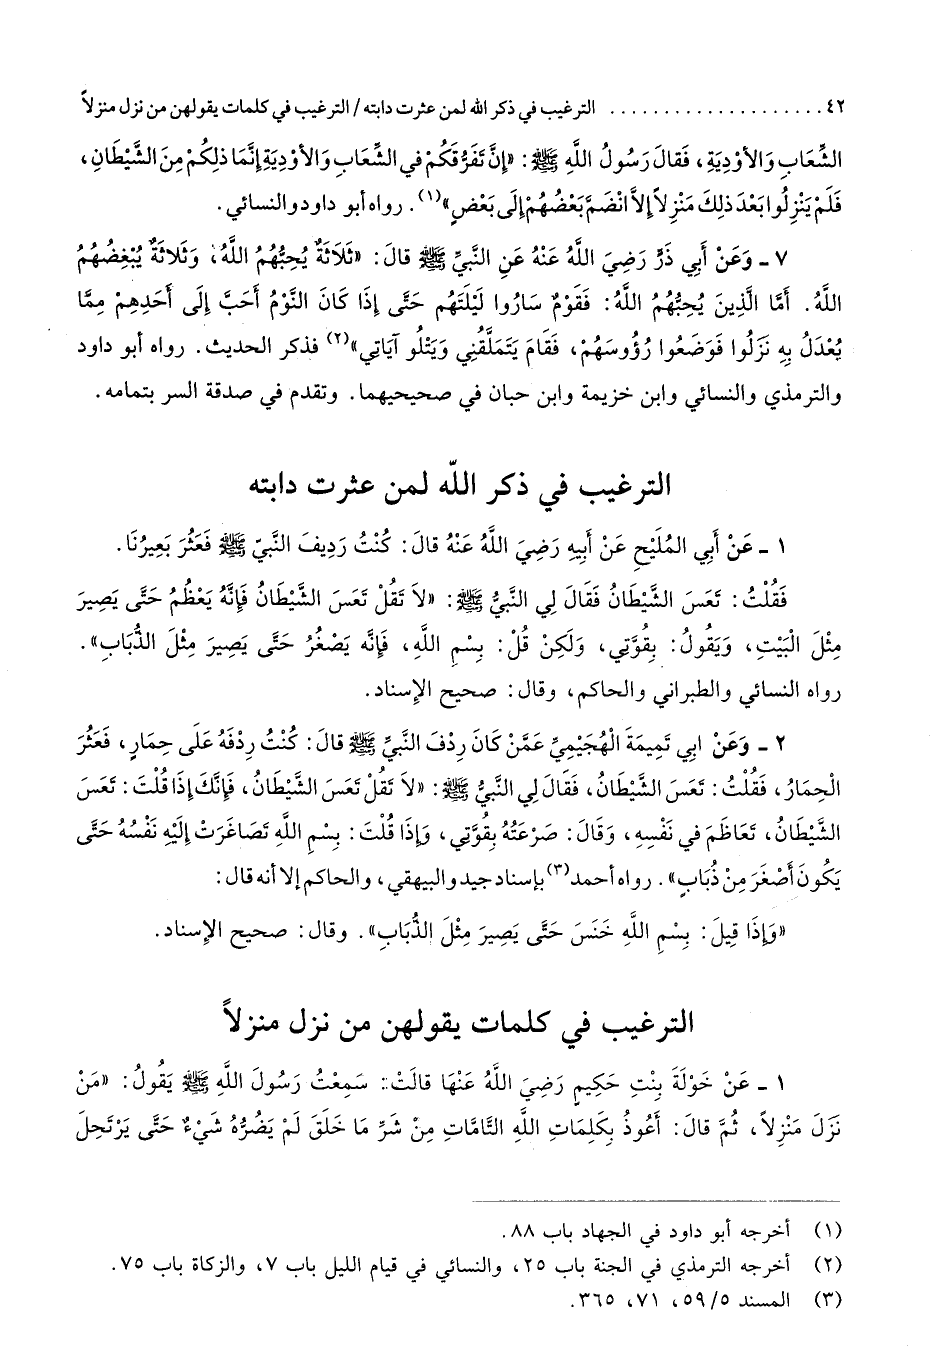 ٤٢ ..................... الترغيب في ذكر الله لمن عثرت دابته / الترغيب في كلمات يقولهن من نزل منزلاً
الشِّعَابِ وَالأوْدِيَةِ، فَقالَ رَسُولُ اللَّهِ ﷺ: «إنَّ تَفَرُّقَكُمْ في الشِّعَابِ وَالأوْدِيَةِ إنَّمَا ذلِكُمْ مِنَ الشَّيْطَانِ،
فَلَمْ يَنْزِلُوا بَعْدَ ذلِكَ مَنْزِلاً إلاَّ انْضَمَّ بَعْضُهُمْ إلَى بَعْضٍ»(١). رواه أبو داود والنسائي.
٧ ـ وَعَنْ أبِي ذَرٍّ رَضِيَ اللَّهُ عَنْهُ عَنِ النَّبيِّ ﷺ قالَ: «ثَلاَثَةٌ يُحِبُّهُمُ اللَّهُ، وَثَلاثَةٌ يُبْغِضُهُمُ
اللَّهُ. أمَّا الَّذِينَ يُحِبُّهُمُ اللَّهُ: فَقَوْمٌ سَارُوا لَيْلَتَهُم حَتَّى إذَا كَانَ النَّوْمُ أحَبَّ إلَى أحَدِهِمْ مِمَّا
يُعْدَلُ بِهِ نَزَلُوا فَوَضَعُوا رُؤُوسَهُمْ، فَقَامَ يَتَمَلَّقُنِي وَيَتْلُو آيَاتِي»(٢) فذكر الحديث. رواه أبو داود
والترمذي والنسائي وابن خزيمة وابن حبان في صحيحيهما. وتقدم في صدقة السر بتمامه.
الترغيب في ذكر اللّه لمن عثرت دابته
١ ـ عَنْ أبِي المُلَيْحِ عَنْ أبِيهِ رَضِيَ اللَّهُ عَنْهُ قالَ: كُنْتُ رَدِيفَ النَّبيِّ ﷺ فَعَثُرَ بَعِيرُنَا.
فَقُلْتُ: تَعَسَ الشَّيْطَانُ فَقَالَ لِي النَّبيُّ ﷺ: «لاَ تَقُلْ تَعَسَ الشَّيْطَانُ فَإنَّهُ يَعْظُمُ حَتَّى يَصِيرَ
مِثْلَ الْبَيْتِ، وَيَقُولُ: بِقُوَّتِي، وَلَكِنْ قُلْ: بِسْمِ اللَّهِ، فَإنَّه يَصْغُرُ حَتَّى يَصِيرَ مِثْلَ الذُّبَابِ».
رواه النسائي والطبراني والحاكم، وقال: صحيح الإسناد.
٢ ـ وَعَنْ ابِي تَمِيمَةَ الْهُجَيْمِيِّ عَمَّنْ كَانَ رِدْفَ النَّبيِّ ﷺ قالَ: كُنْتُ رِدْفَهُ عَلَى حِمَارٍ، فَعَثُرَ
الْحِمَارُ، فَقُلْتُ: تَعَسَ الشَّيْطَانُ، فَقَالَ لِي النَّبيُّ ﷺ: «لاَ تَقُلْ تَعَسَ الشَّيْطَانُ، فَإنَّكَ إذَا قُلْتَ: تَعَسَ
الشَّيْطَانُ، تَعَاظَمَ في نَفْسِهِ، وَقَالَ: صَرْعَتُهُ بِقُوَّتِي، وَإذَا قُلْتَ: بِسْمِ اللَّهِ تَصَاغَرَتْ إلَيْهِ نَفْسُهُ حَتَّى
يَكُونَ أصْغَرَ مِنْ ذُبَابٍ». رواه أحمد(٣) بإسناد جيد والبيهقي، والحاكم إلا أنه قال:
«وَإذَا قِيلَ: بِسْمِ اللَّهِ خَنَسَ حَتَّى يَصِيرَ مِثْلَ الذُّبَابِ». وقال: صحيح الإسناد.
الترغيب في كلمات يقولهن من نزل منزلاً
١ ـ عَنْ خَوْلَةَ بِنْتِ حَكِيمٍ رَضِيَ اللَّهُ عَنْهَا قالَتْ: سَمِعْتُ رَسُولَ اللَّهِ ﷺ يَقُولُ: «مَنْ
نَزَلَ مَنْزِلاً، ثُمَّ قالَ: أعُوذُ بِكَلِمَاتِ اللَّهِ التَّامَّاتِ مِنْ شَرِّ مَا خَلَقَ لَمْ يَضُرَّهُ شَيْءٌ حَتَّى يَرْتَحِلَ
(١) أخرجه أبو داود في الجهاد باب ٨٨.
(٢) أخرجه الترمذي في الجنة باب ٢٥، والنسائي في قيام الليل باب ٧، والزكاة باب ٧٥.
(٣) المسند ٥/ ٥٩، ٧١، ٣٦٥.